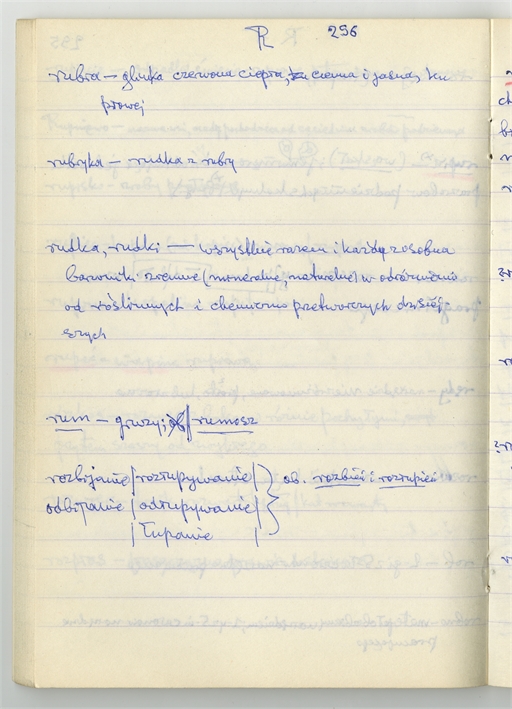 R 296
rubra – glinka czerwona ciepła, ciemna i jasna, ku
płowej
rubryka – rudka z rubry
rudka, rudki — wszystkie razem i każdą z osobna
barwniki ziemne (mineralne, naturalne) w odróżnieniu
od roślinnych i chemiczno przetworzych dzisiej-
szych
rum – gruzy; rumosz
rozbijanie / roztupywanie / ob. rozbici i roztupici
odbijanie / odtupywanie /
/ łupanie /